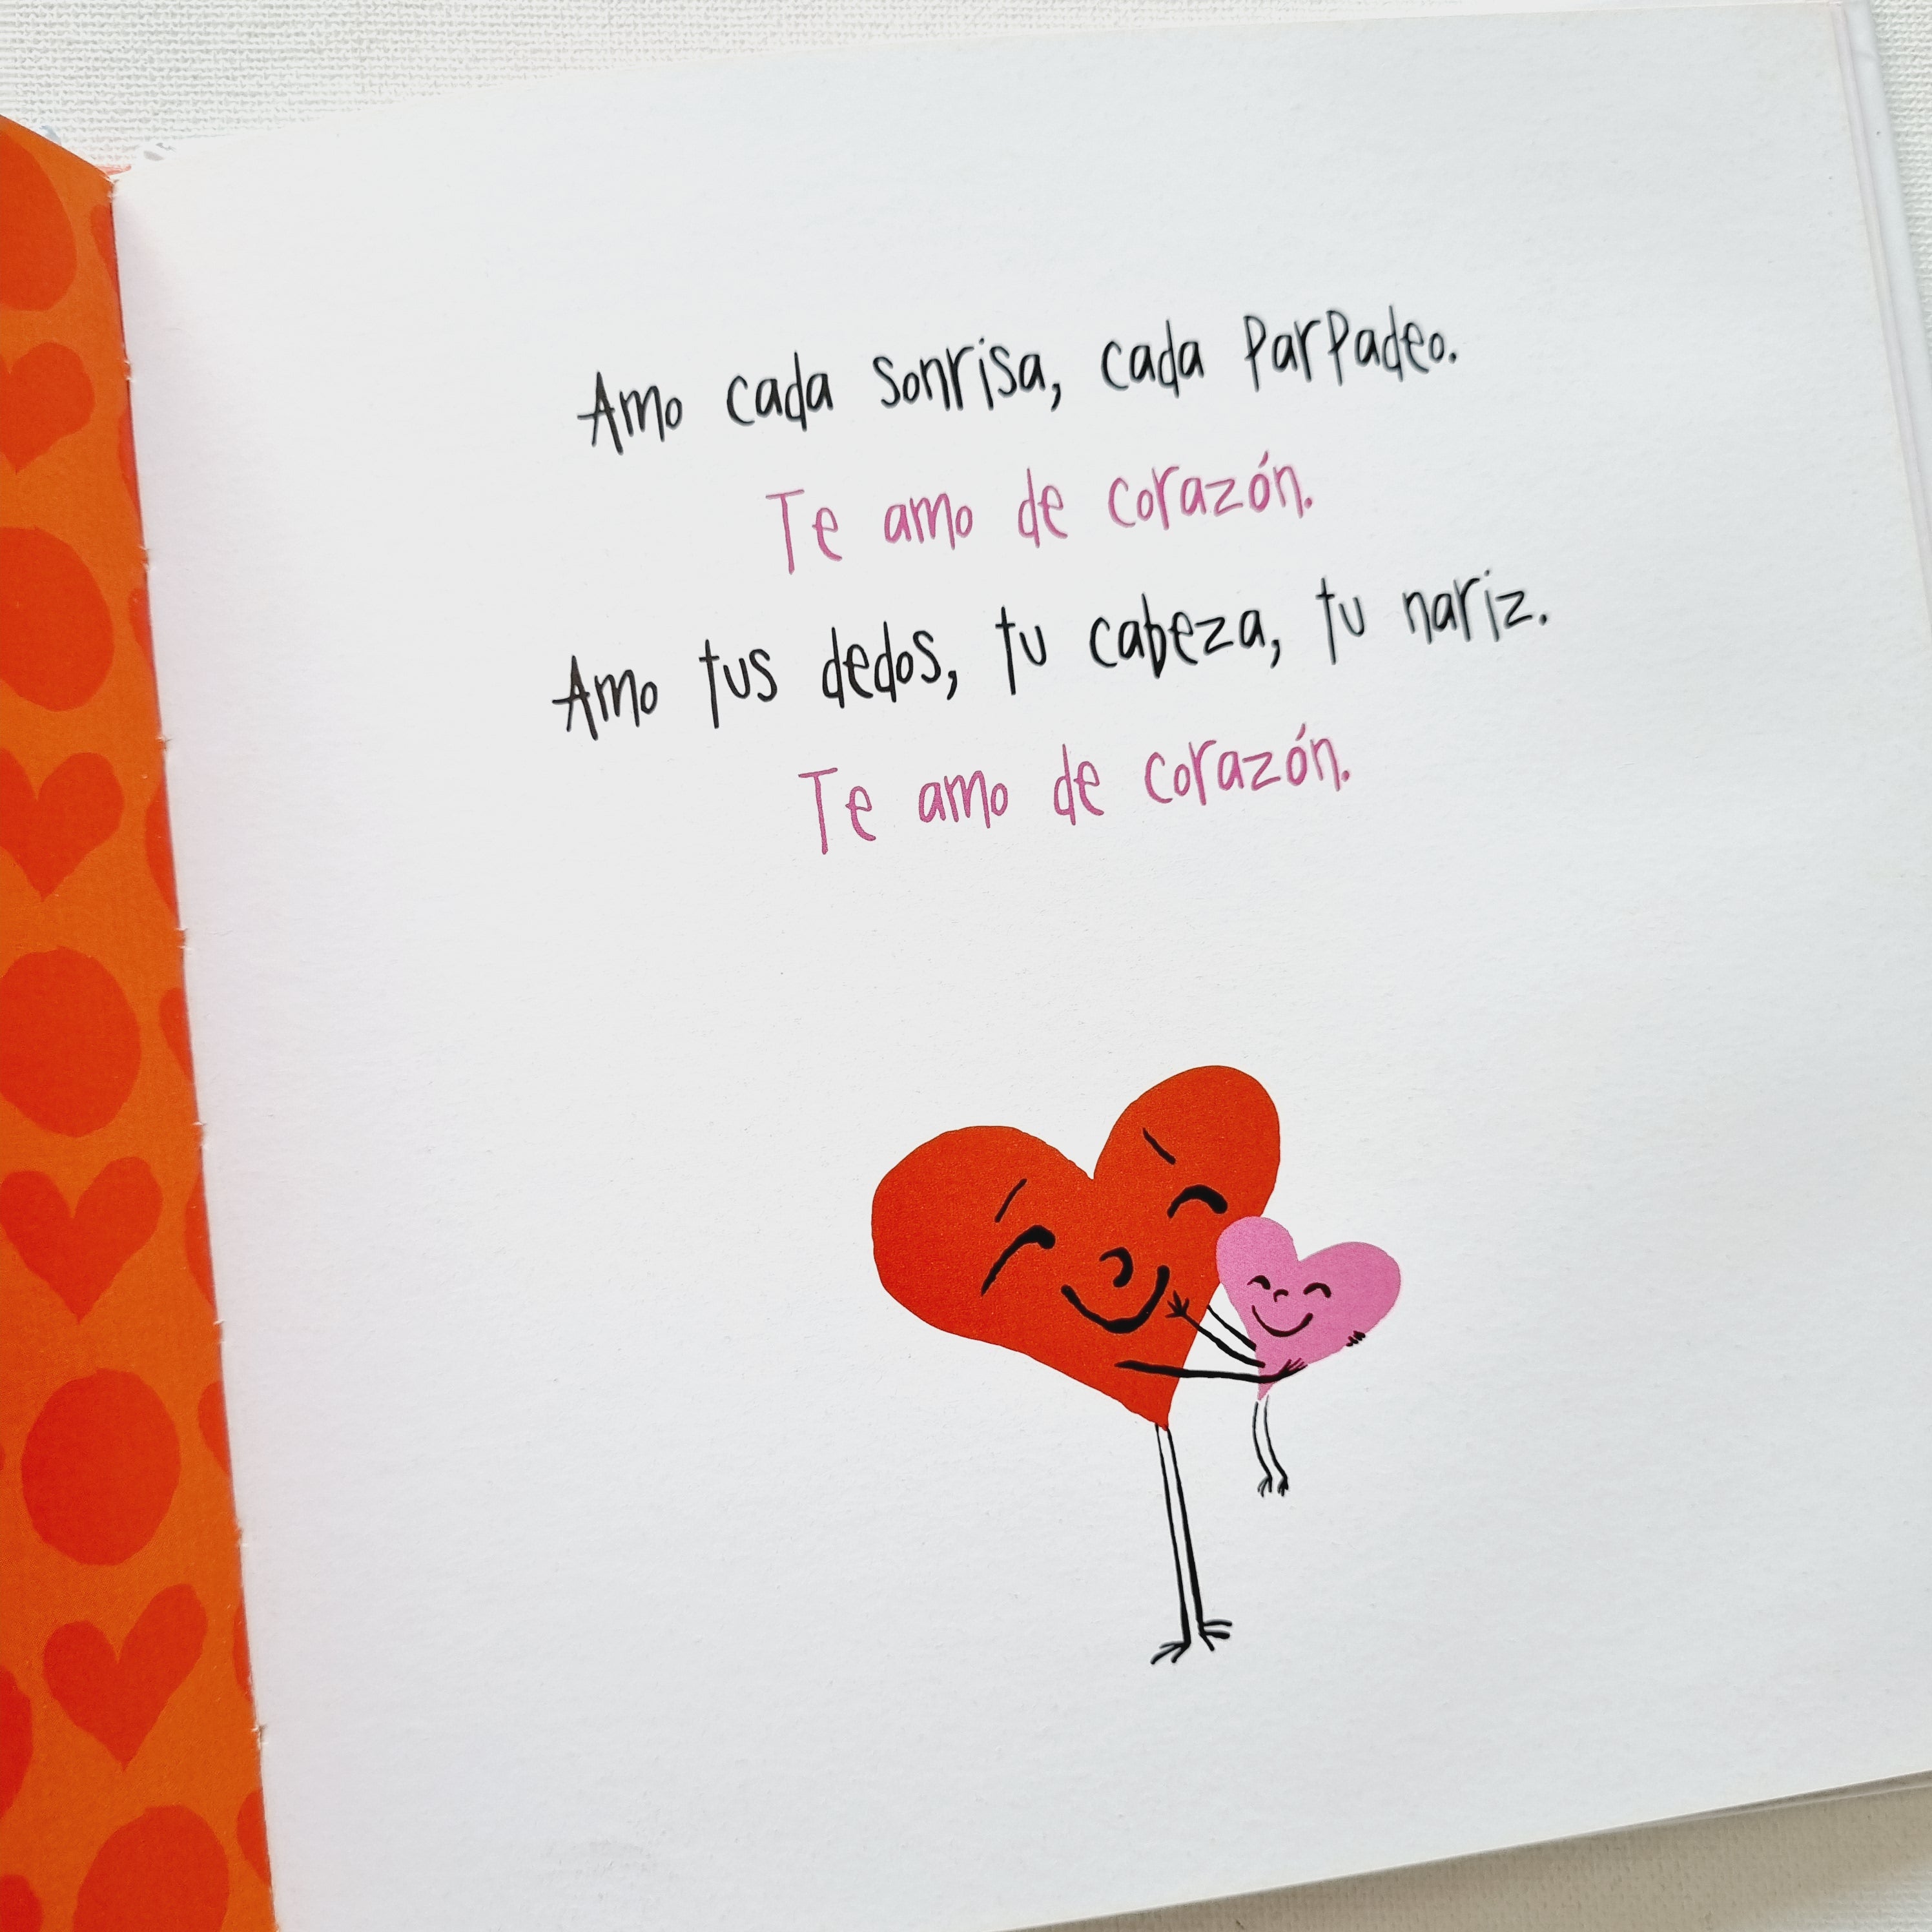 Amo cada sonrisa, cada parpadeo.
Te amo de corazón.
Amo tus dedos, tu cabeza, tu nariz.
Te amo de corazón.